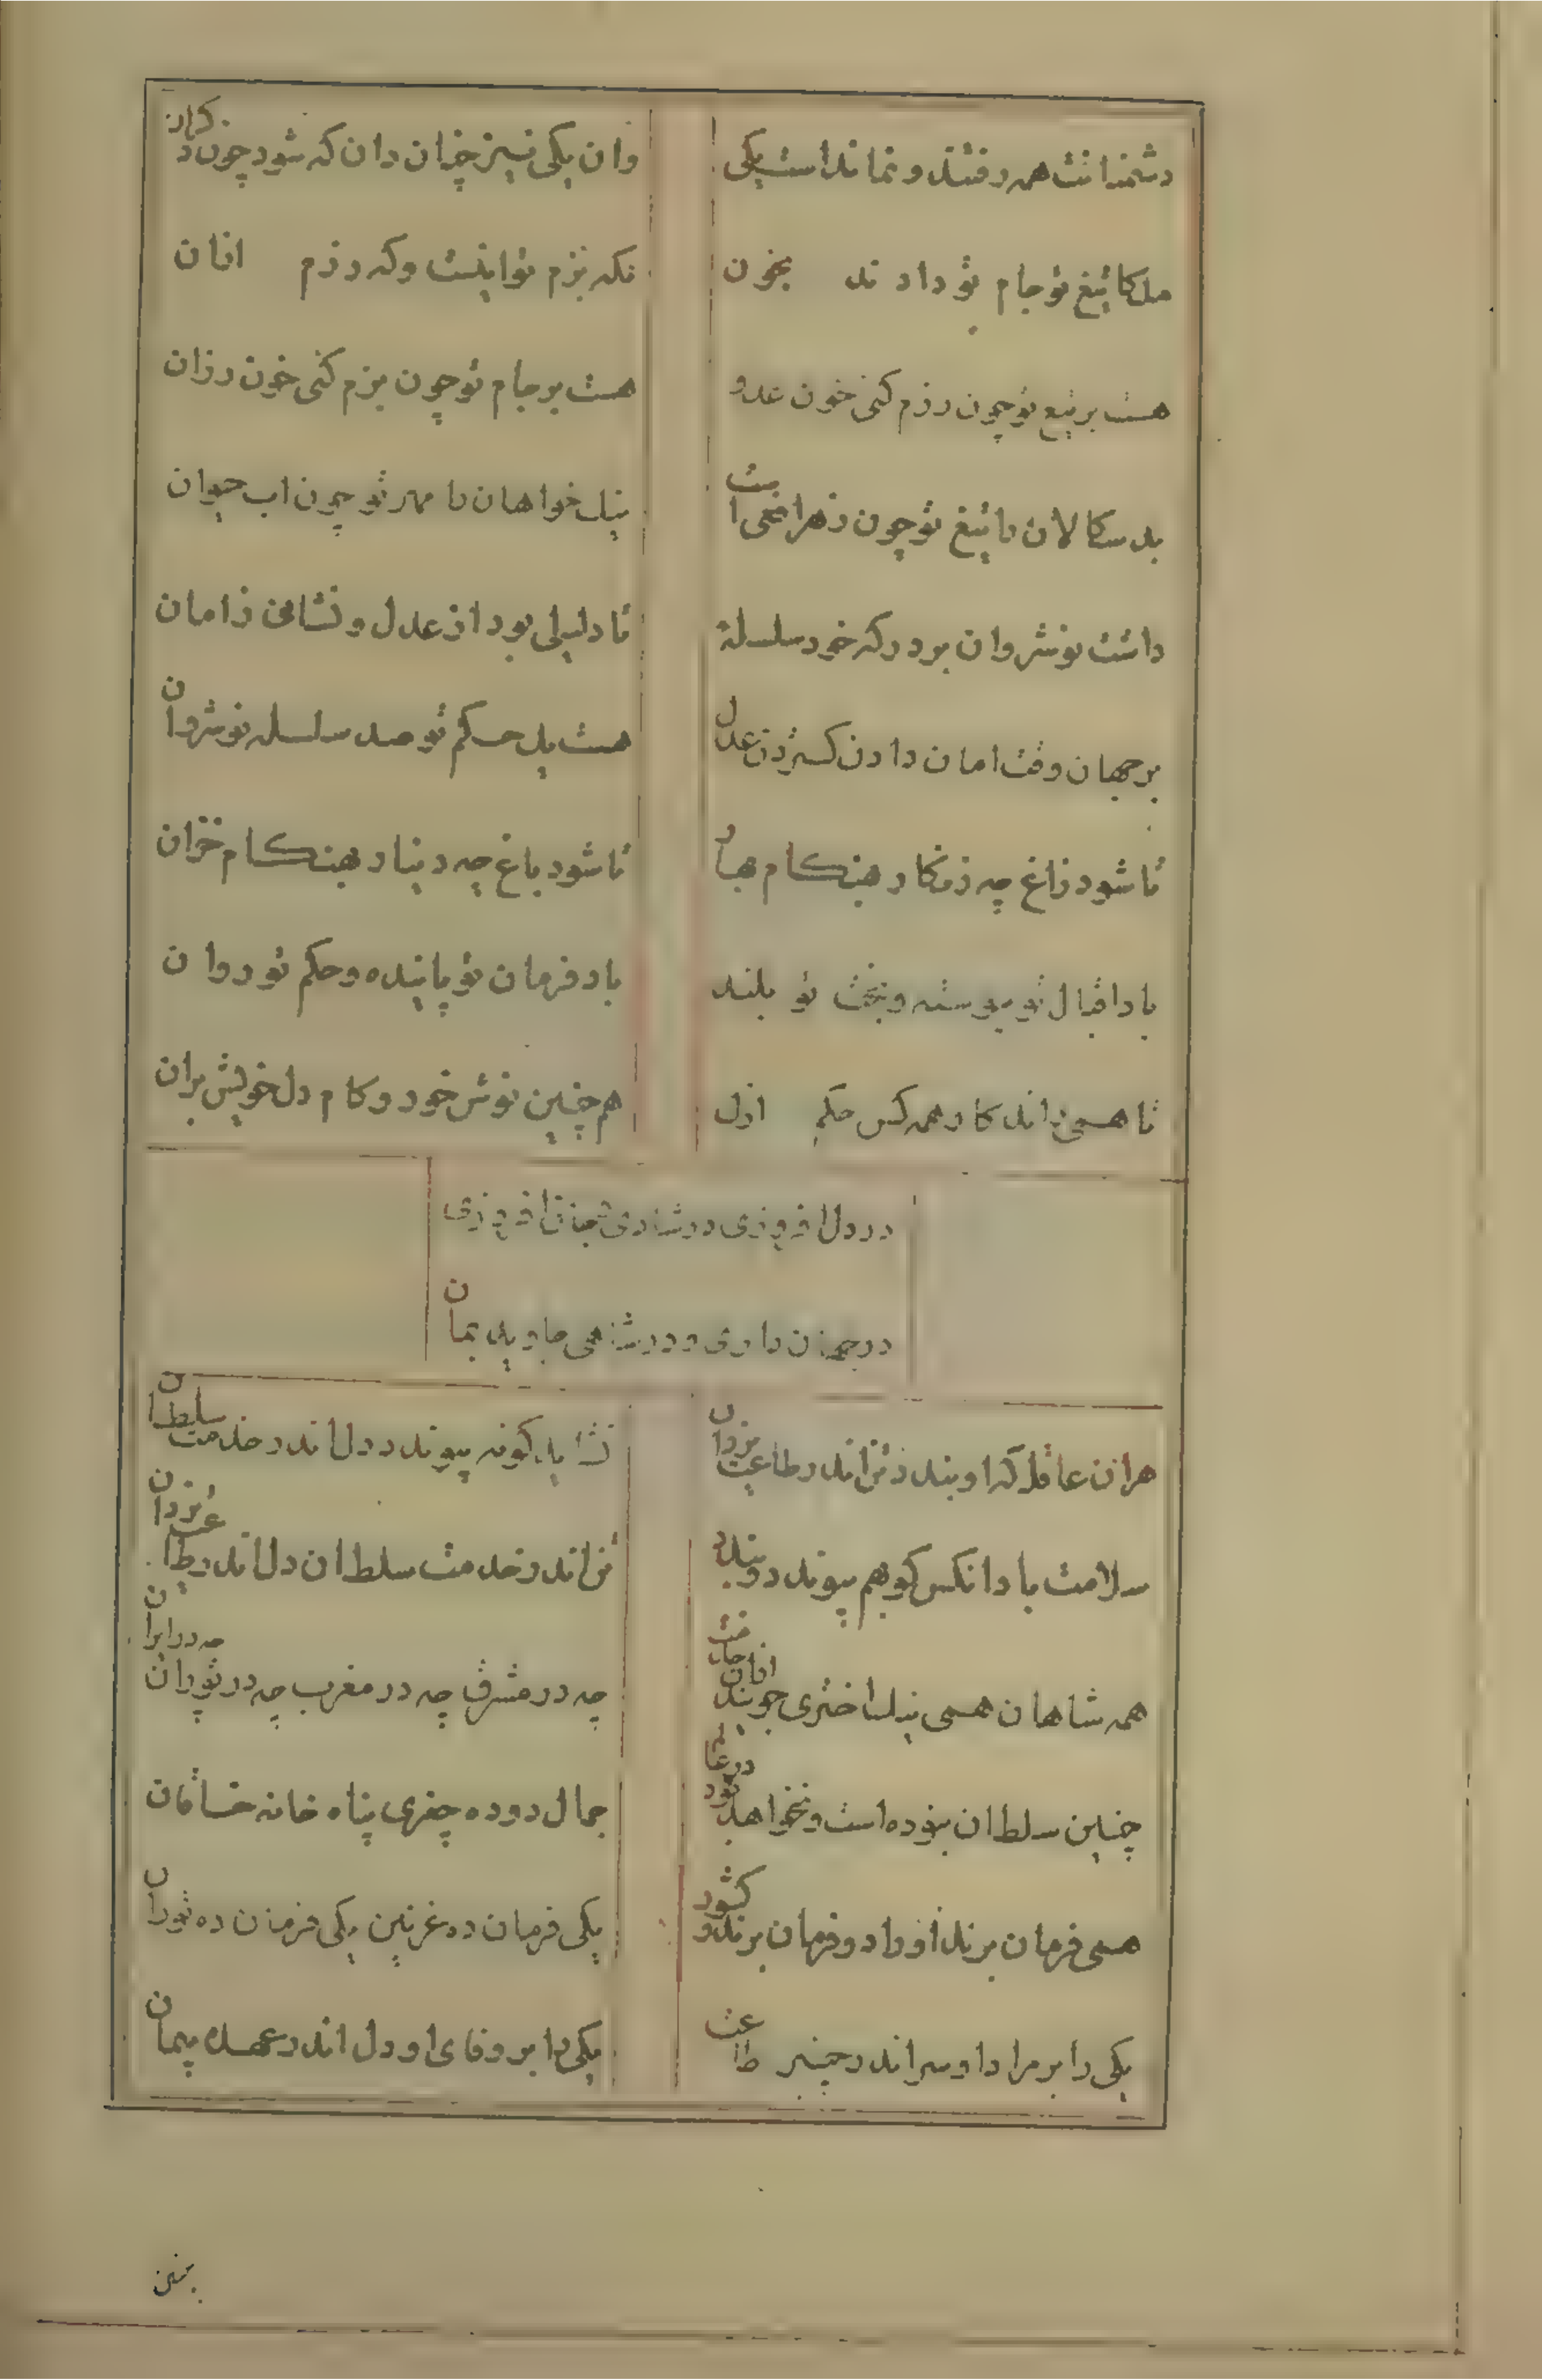 دشمنانت همه رفتند و نماند است یکی
وان یکی نیز چنان دان که شود چون دکران
ملکا تیغ تو جام تو دادند بخون
که بزم تو اینست و که رزم انان
هست بر تیغ تو چون رزم کنی خون عدو
هست بر جام تو چون بزم کنی خون رزان
بد سکالان را تیغ تو چون زهرافعی است
نیک خواهان را مهر تو چون اب حیوان
داشت نوشروان بر درکه خود سلسلهٔ
تا دلیلی بود از عدل و نشانی ز امان
بر جهان وقت امان دادن کستردن عدل
هست یک حکم تو صد سلسله نوشروان
تا شود زاغ چه زنکار هنکام بهار
تا شود باغ چه دینار هنکام خزان
باد اقبال تو پیوسته و بخت تو بلند
باد فرمان تو پاینده و حکم تو روان
تا همی راند کار همه کس حکم ازل
هم چنین نوش خور و کام دل خویش بران
در دل افروزی در شادی جان افروزی
در جهان داری و در شاهی جاوید بمان
هران عاقل که او بندد تن اندر طاعت یزدان
نشاید کونه پیوندد دل اندر خدمت سلطان
سلامت باد انکس کو بهم پیوندد و بندد
تن اندر خدمت سلطان دل اندر طاعت یزدان
همه شاهان همی نیک اختری جویند ازان خدمت
چه در مشرق چه در مغرب چه در توران چه در ایران
چنین سلطان نبوده است و نخواهد بود در عالم
جمال دوده چغری پناه خانه خاقان
همی فرمان برند او را دو فرمان بر ز دو کشور
یکی فرمان ده غزنین یکی فرمان ده توران
یکی را بر مراد او سر اندر چنبر طاعت
یکی را بر وفای او دل اندر عهده پیمان